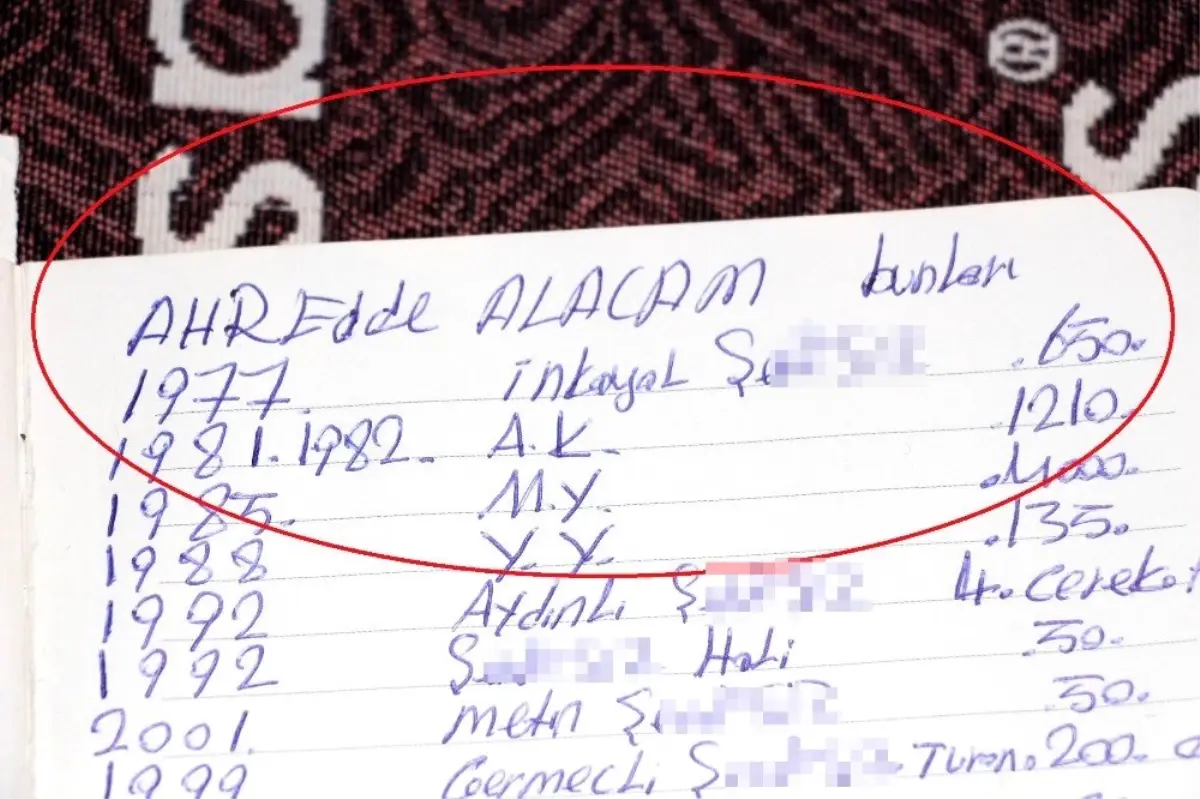 AHREdde ALACAM bunları
1977. inkayal Ş .650.
1981.1982. A.K. .1210.
1985. M.Y. .4000.
1988 Y.Y. .135.
1992 Aydınlı Ş 4. Cereke
1992 Ş Hali .50.
2001. metin Ş .50.
1999 Germeçli Ş Turan. 200.